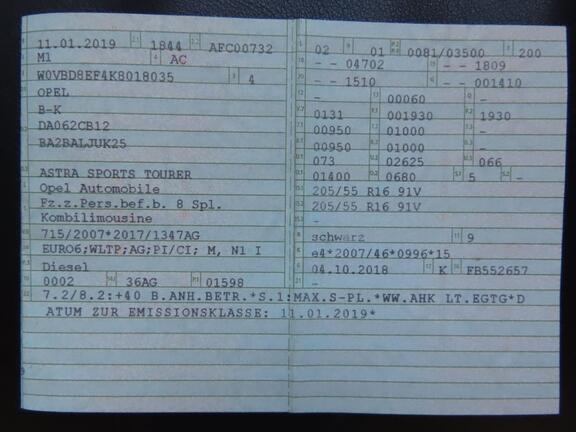 11.01.2019 2.1 1844 2.2 AFC00732
M1 4 AC
W0VBD8EF4K8018035 3 4
OPEL
B-K
DA062CB12
BA2BALJUK25
ASTRA SPORTS TOURER
Opel Automobile
Fz.z.Pers.bef.b. 8 Spl.
Kombilimousine
715/2007*2017/1347AG
EURO6;WLTP;AG;PI/CI; M, N1 I
Diesel
0002 36AG 01598
7.2/8.2:+40 B.ANH.BETR.*S.1:MAX.S-PL.*WW.AHK LT.EGTG*D
ATUM ZUR EMISSIONSKLASSE: 11.01.2019*
02 01 0081/03500 200
- - 04702 - - 1809
- - 1510 - 001410
- 00060 -
0131 001930 1930
00950 01000 -
00950 01000 -
073 02625 066
01400 0680 5 -
205/55 R16 91V
205/55 R16 91V
-
schwarz 11 9
e4*2007/46*0996*15
04.10.2018 17 K 16 FB552657
-